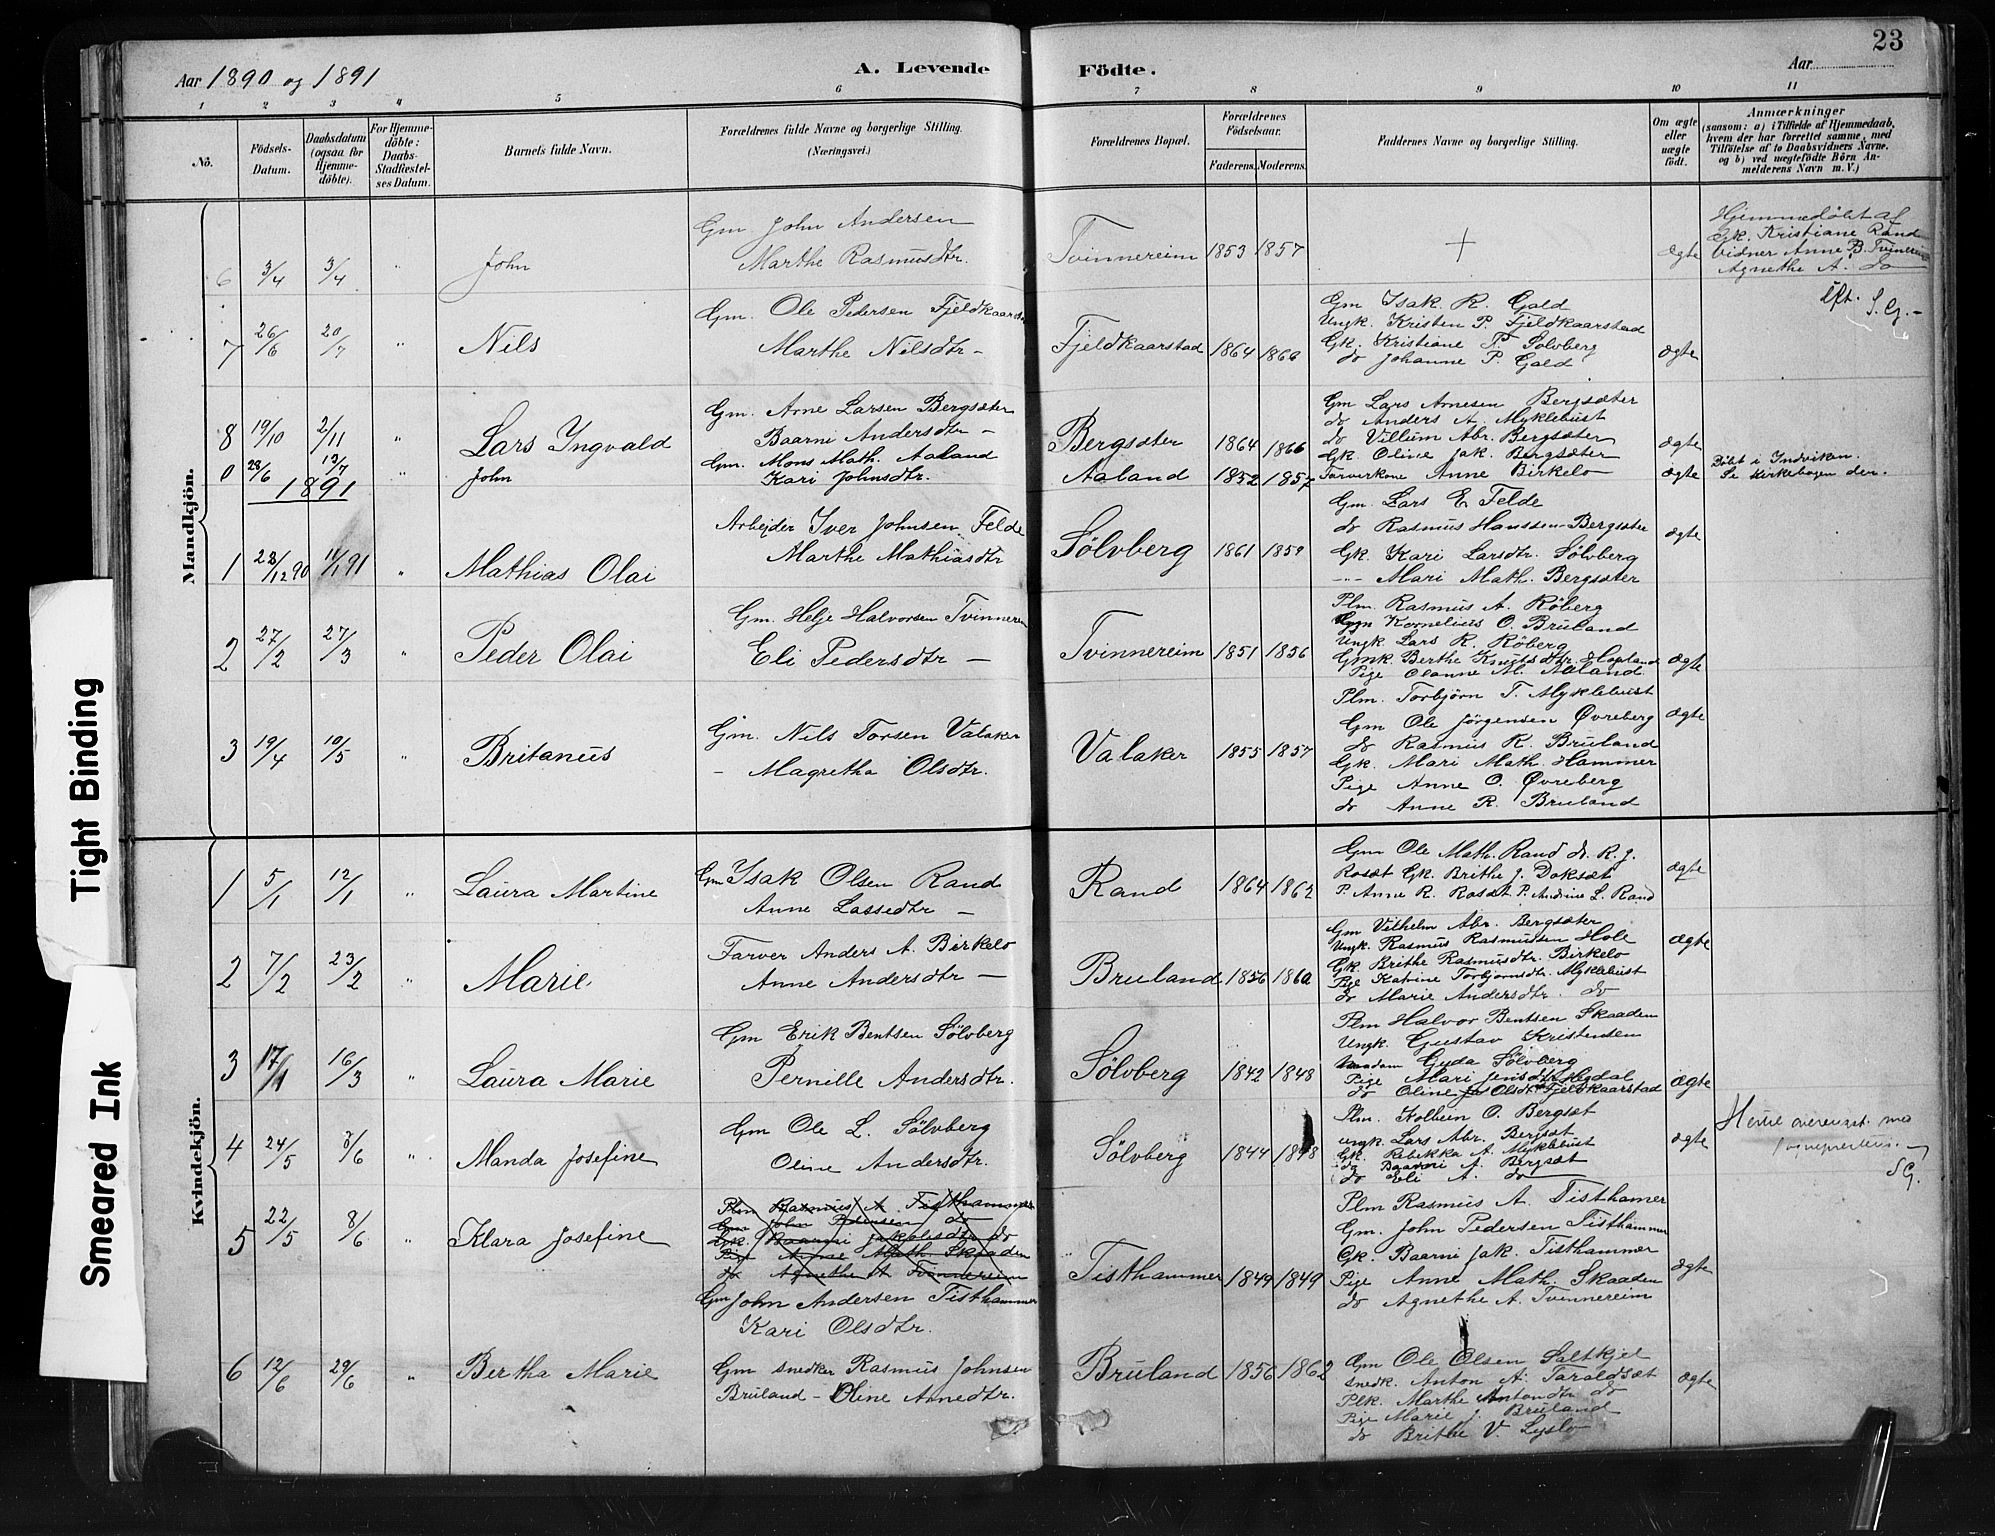 23
Aar 1890 og 1891
A. Levende Födte.
Aar
1 2 3 4 5 6 7 8 9 10 11
No.
Födsels-
Datum.
Daabsdatum
(ogsaa for
Hjemme-
döbte).
For Hjemme-
döbte:
Daabs-
Stadfæstel-
ses Datum.
Barnets fulde Navn.
Forældrenes fulde Navne og borgerlige Stilling.
(Næringsvei.)
Forældrenes Bopæl.
Forældrenes
Födselsaar.
Faderens. Moderens.
Faddernes Navne og borgerlige Stilling.
Om ægte
eller
uægte
födt.
Anmærkninger
(saasom: a) i Tilfælde af Hjemmedaab,
hvem der har forrettet samme, med
Tilföielse af to Daabsvidners Navne.
og b) ved uægtefödte Börn An-
melderens Navn m. V.)
Mandkjön.
6 3/4 3/4 " John
Gm John Andersen
Marthe Rasmusdtr.
Tvinnereim 1853 1857 + ægte
Hjemmedöbt af
Gk. Kristiane Rand
Vidner Anne B. Tvinnereim
Agnethe A. do
7 26/6 20/7 " Nils
Gm. Ole Pedersen Fjeldkaarstad
Marthe Nilsdtr -
Fjeldkaarstad 1864 1860
Gm Isak R. Gald
Ungk. Kristen P. Fjeldkaarstad
Gk. Kristiane P. Sölvberg
do Johanne P. Gald
ægte
S. G. -
8 19/10 2/11 " Lars Ingvald
Gm. Arne Larsen Bergsæter
Baarni Andersdtr -
Bergsæter 1864 1866
Gm Lars Arnesen Bergsæter
do Anders A. Myklebust
do Villum Abr. Bergsæter
Gk. Oline Jak. Bergsæter
ægte
0 28/6 13/7 " John
Gm. Mons Math. Aaland
Kari Johnsdtr.
Aaland 1852 1857 Farverkone Anne Birkelo ægte
Döbt i Indviken.
Se Kirkebogen der.
1891
1 28/12 90 11/1 91 " Mathias Olai
Arbejder Iver Johnsen Felde
Marthe Mathiasdtr
Sölvberg 1861 1859
Gm. Lars E. Felde
do Rasmus Hanssen Bergsæter
Gk. Kari Larsdtr. Sölvberg
Mari Math. Bergsæter
ægte
2 27/2 27/3 " Peder Olai
Gm. Helje Halvorsen Tvinnereim
Eli Pedersdtr -
Tvinnereim 1851 1856
Plm. Rasmus A. Röberg
Kornelius O. Bruland
Ungk Lars R. Röberg
Gmk. Berthe Knutsdtr. Hopland
Pige Olanne M. Aaland
ægte
3 19/4 10/5 " Britanus
Gm. Nils Torsen Valaker
- Magretha Olsdtr.
Valaker 1855 1857
Plm. Torbjörn T. Myklebust
Gm Ole Jörgensen Øvreberg
do Rasmus R. Bruland
Gk. Mari Math. Hammer
Pige Anne O. Øvreberg
do Anne R. Bruland
ægte
Kvindekjön.
1 5/1 12/1 " Laura Martine
Gm Isak Olsen Rand
Anne Lassedtr -
Rand 1864 1862
Gm Ole Math. Rand do R. J.
Rosæt Gk. Brithe J. Doksæt
P. Anne R. Rosæt P. Andrine L. Rand
ægte
2 7/2 23/2 " Marie
Farver Anders A. Birkelo
Anne Andersdtr -
Bruland 1856 1860
Gm Vilhelm Abr. Bergsæter
Ungk. Rasmus Rasmussen Hole
Gk. Brithe Rasmusdtr. Birkelo
Pige Katrine Torbjörnsdtr. Myklebust
do Marie Andersdtr. do
ægte
3 17/1 16/3 " Laura Marie
Gm Erik Bentsen Sölvberg
Pernille Andersdtr.
Sölvberg 1842 1848
Plm Halvor Bentsen Skaaden
Ungk. Gustav Kristensen
Madam Gyda Sölvberg
Pige Mari Jensdtr Hegdal
do Oline Olsdtr Fjeldkaarstad
ægte
4 24/5 7/6 " Manda Josefine
Gm Ole L. Sölvberg
Oline Andersdtr.
Sölvberg 1844 1848
Plm. Kolbein O. Bergsæt
Ungk. Lars Abr. Bergsæt
Gk. Rebekka A. Myklebust
do Baarni A. Bergsæt
do Eli A. do
ægte
SG.
5 22/5 8/6 Klara Josefine
Plm Rasmus A Tisthammer
Gm John Pedersen do
Gk. Baarni Jakobsdtr do
Pige Anne Math. Skaaden
do Agnethe A Tvinnereim
Gm John Andersen Tisthammer
Kari Olsdtr.
Tisthammer 1849 1849
Plm Rasmus A. Tisthamer
Gm. John Pedersen Tisthammer
Gk. Baarni Jak. Tisthammer
Pige Anne Math. Skaaden
do Agnethe A. Tvinnereim
ægte
6 12/6 29/6 " Bertha Marie
Gm snedker Rasmus Johnsen
Bruland - Oline Arnedtr.
Bruland 1856 1862
Gm Ole Olsen Saltkjel
snedk. Anton A. Taraldsæt
Plk. Marthe Antondtr do
Pige Marie J. Bruland
do Brithe V. Lyslo
ægte
Tight Binding
Smeared Ink